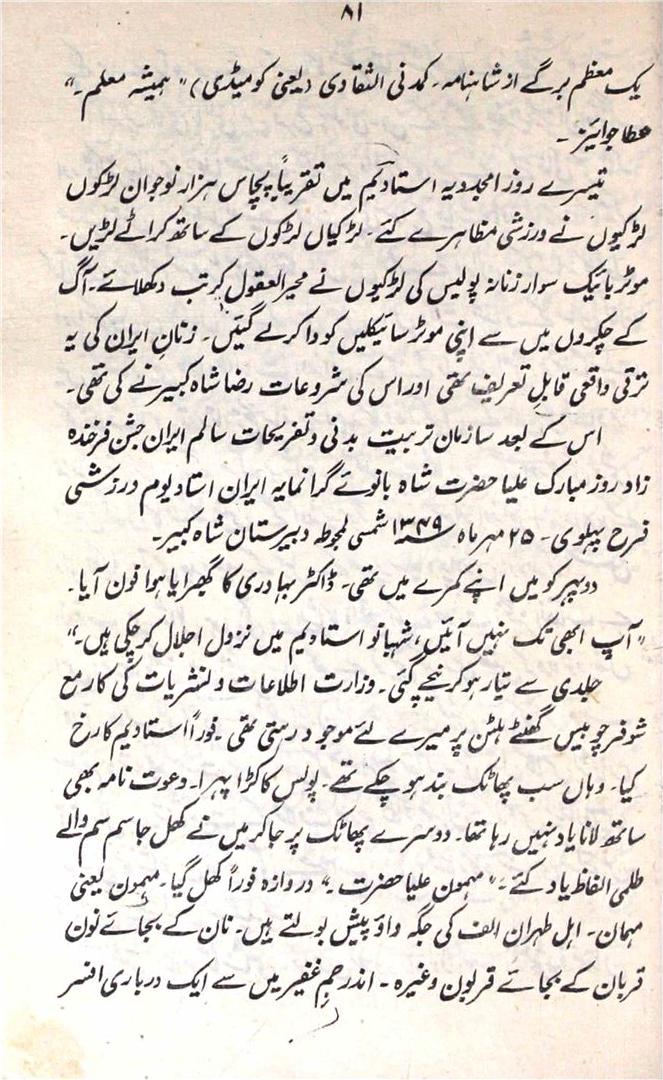 ۸۱
یک معظم برگے از شاہنامہ۔ کمدنی الثقادی (یعنی کومیڈی) "ہمیشہ معلم۔"
عطا جوائیز۔
تیسرے روز امجدیہ استادیم میں تقریباً پچاس ہزار نوجوان لڑکوں
لڑکیوں نے ورزشی مظاہرے کئے۔ لڑکیاں لڑکوں کے ساتھ کراٹے لڑیں۔
موٹر بائیک سوار زنانہ پولیس کی لڑکیوں نے محیرالعقول کرتب دکھلائے۔ آگ
کے چکروں میں سے اپنی موٹر سائیکلیں کودا کر لے گئیں۔ زنانِ ایران کی یہ
ترقی واقعی قابلِ تعریف تھی اور اس کی شروعات رضا شاہ کبیر نے کی تھی۔
اس کے بعد سازمان تربیت بدنی و تفریحات سالم ایران جشن فرخندہ
زاد روز مبارک علیا حضرت شاہ بانوئے گرانمایہ ایران استادیوم ورزشی
فرح پہلوی۔ ۲۵ مہر ماہ ۱۳۴۹ شمسی لمحوطہ دبیرستان شاہ کبیر۔
دوپہر کو میں اپنے کمرے میں تھی۔ ڈاکٹر بہادری کا گھبرایا ہوا فون آیا۔
"آپ ابھی تک نہیں آئیں، شہبانو استادیم میں نزول اجلال کر چکی ہیں۔"
جلدی سے تیار ہو کر نیچے گئی۔ وزارت اطلاعات و نشریات کی کار مع
شوفر چوبیس گھنٹے ہلٹن پر میرے لئے موجود رہتی تھی۔ فوراً استادیم کا رخ
کیا۔ وہاں سب پھاٹک بند ہو چکے تھے۔ پولس کا کڑا پہرا۔ دعوت نامہ بھی
ساتھ لانا یاد نہیں رہا تھا۔ دوسرے پھاٹک پر جا کر میں نے کھل جا سم سم والے
طلمی الفاظ یاد کئے۔ "مہمون علیا حضرت۔" دروازہ فوراً کھل گیا۔ مہمون یعنی
مہمان۔ اہل طہران الف کی جگہ واؤ پیش بولتے ہیں۔ نان کے بجائے نون
قربان کے بجائے قربون وغیرہ۔ اندر جمِ غفیر میں سے ایک درباری افسر